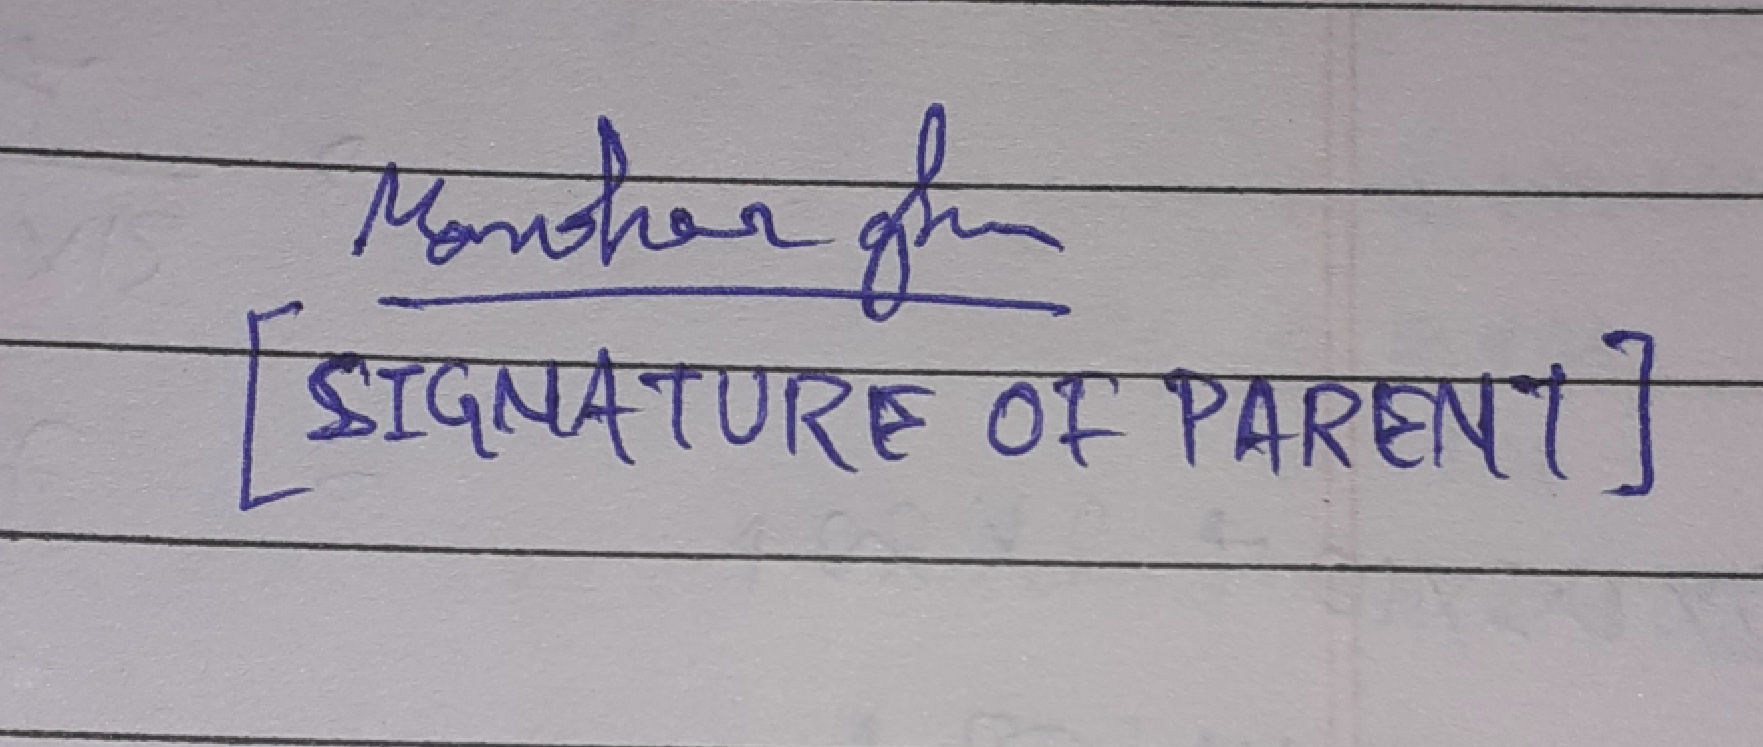 Manohar
[SIGNATURE OF PARENT]